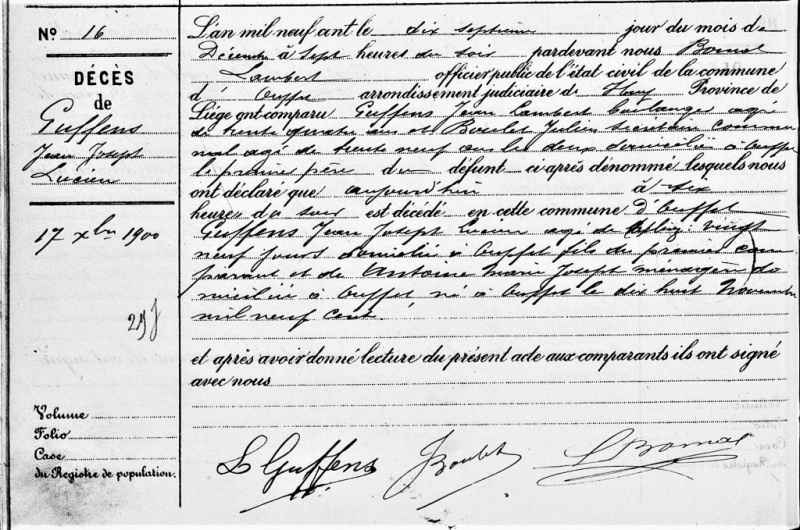 Nº 16
DÉCÈS
de
Guffens
Jean Joseph
Lucien
17 xbre 1900
29 j
Volume
Folio
Case
du Registre de population.
L'an mil neuf cent le dix septième jour du mois de
Décembre à sept heures du soir pardevant nous Bomal
Lambert officier public de l'état civil de la commune
d' Ouffet arrondissement judiciaire de Huy Province de
Liége ont comparu Guffens Jean Lambert boulanger agé
de trente quatre ans et Boulet Julien secrétaire commu
nal agé de trente neuf ans les deux domiciliés à Ouffet
le premier père du défunt ci après dénommé lesquels nous
ont déclaré que aujourd'hui à six
heures du soir est décédé en cette commune d'Ouffet
Guffens Jean Joseph Lucien agé de vingt
neuf jours domicilié à Ouffet fils du premier com
parant et de Antoine Marie Joseph ménagère do
miciliée à Ouffet, né à Ouffet le dix huit Novembre
mil neuf cent.
et après avoir donné lecture du présent acte aux comparants ils ont signé
avec nous
L Guffens J Boulet L Bomal